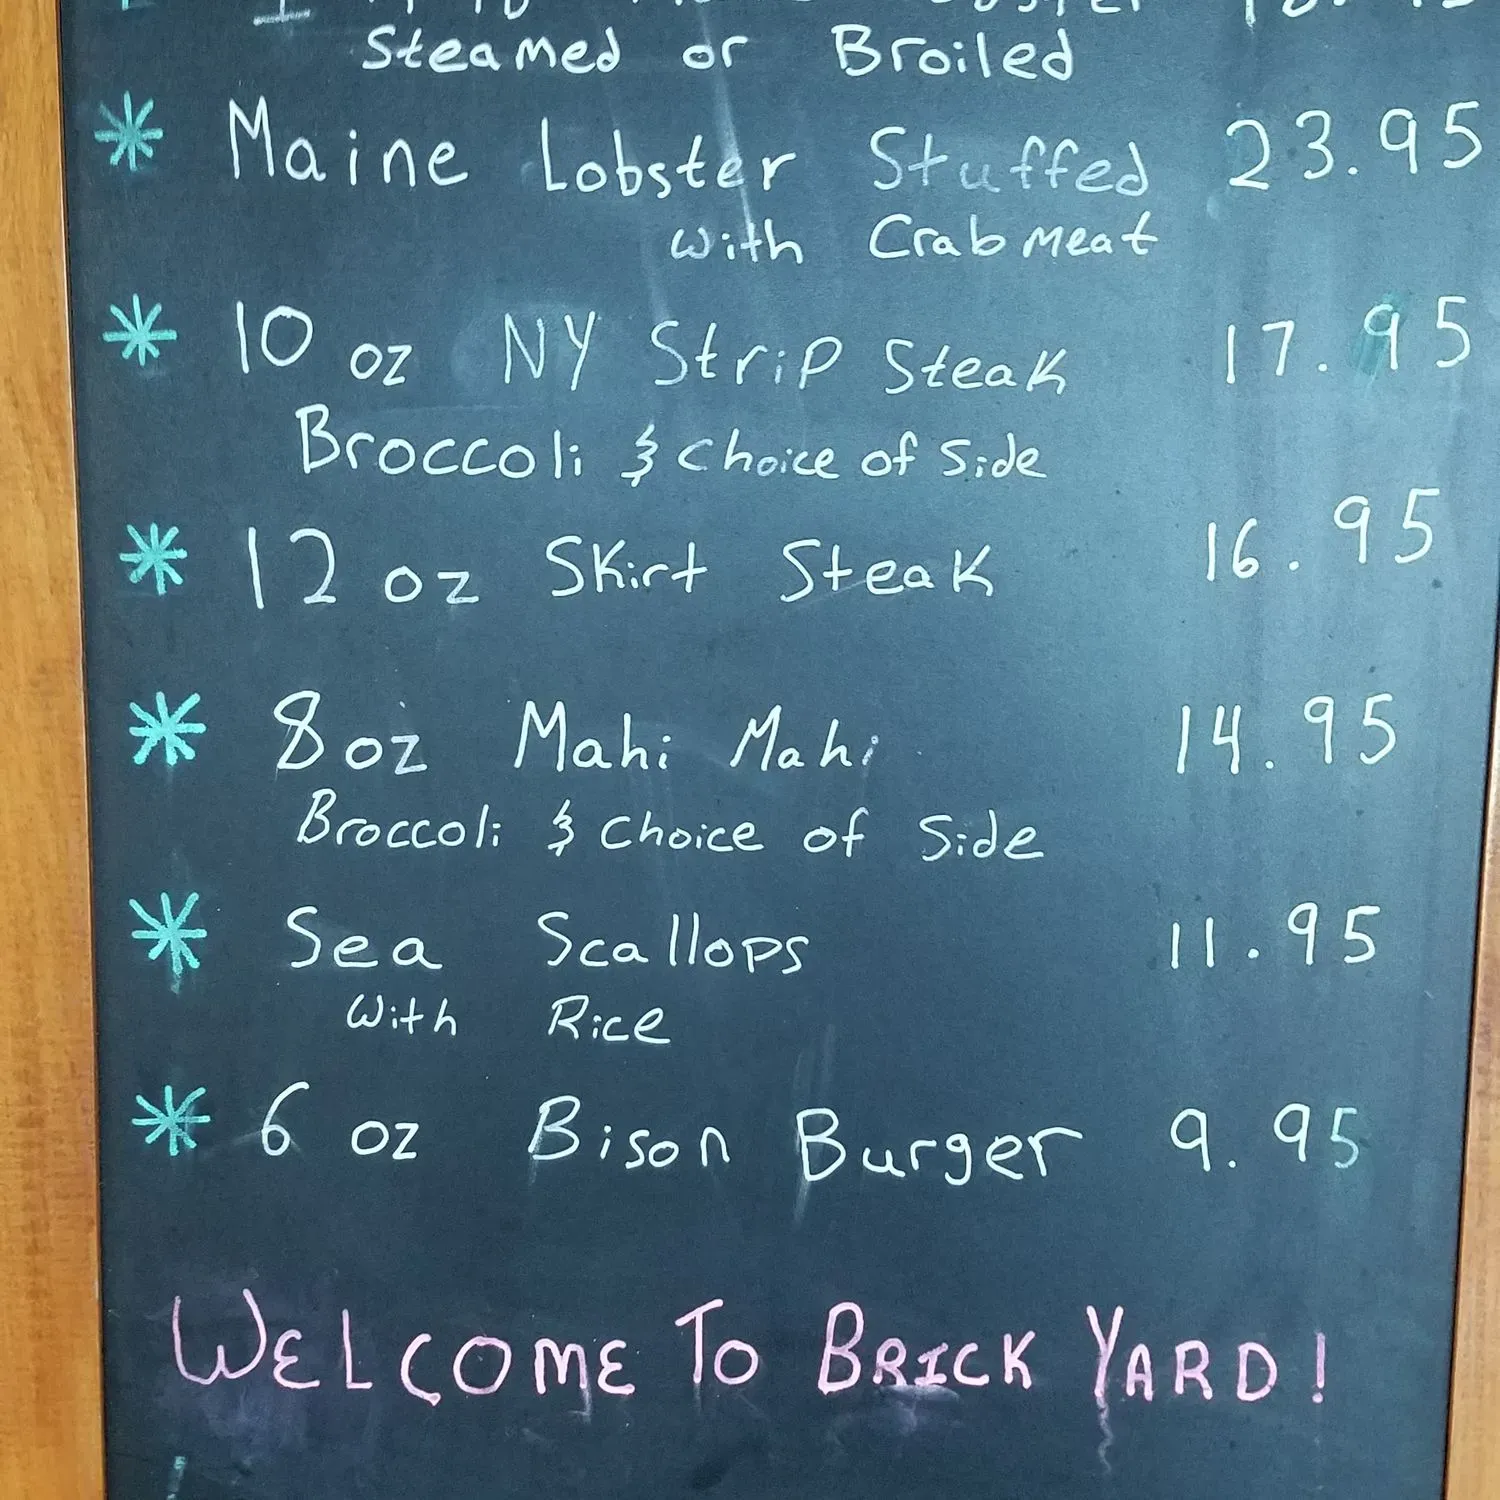 Steamed or Broiled
* Maine Lobster Stuffed 23.95
with Crabmeat
* 10 oz NY Strip Steak 17.95
Broccoli & Choice of Side
* 12 oz Skirt Steak 16.95
* 8 oz Mahi Mahi 14.95
Broccoli & Choice of Side
* Sea Scallops 11.95
With Rice
* 6 oz Bison Burger 9.95
WELCOME TO BRICK YARD!